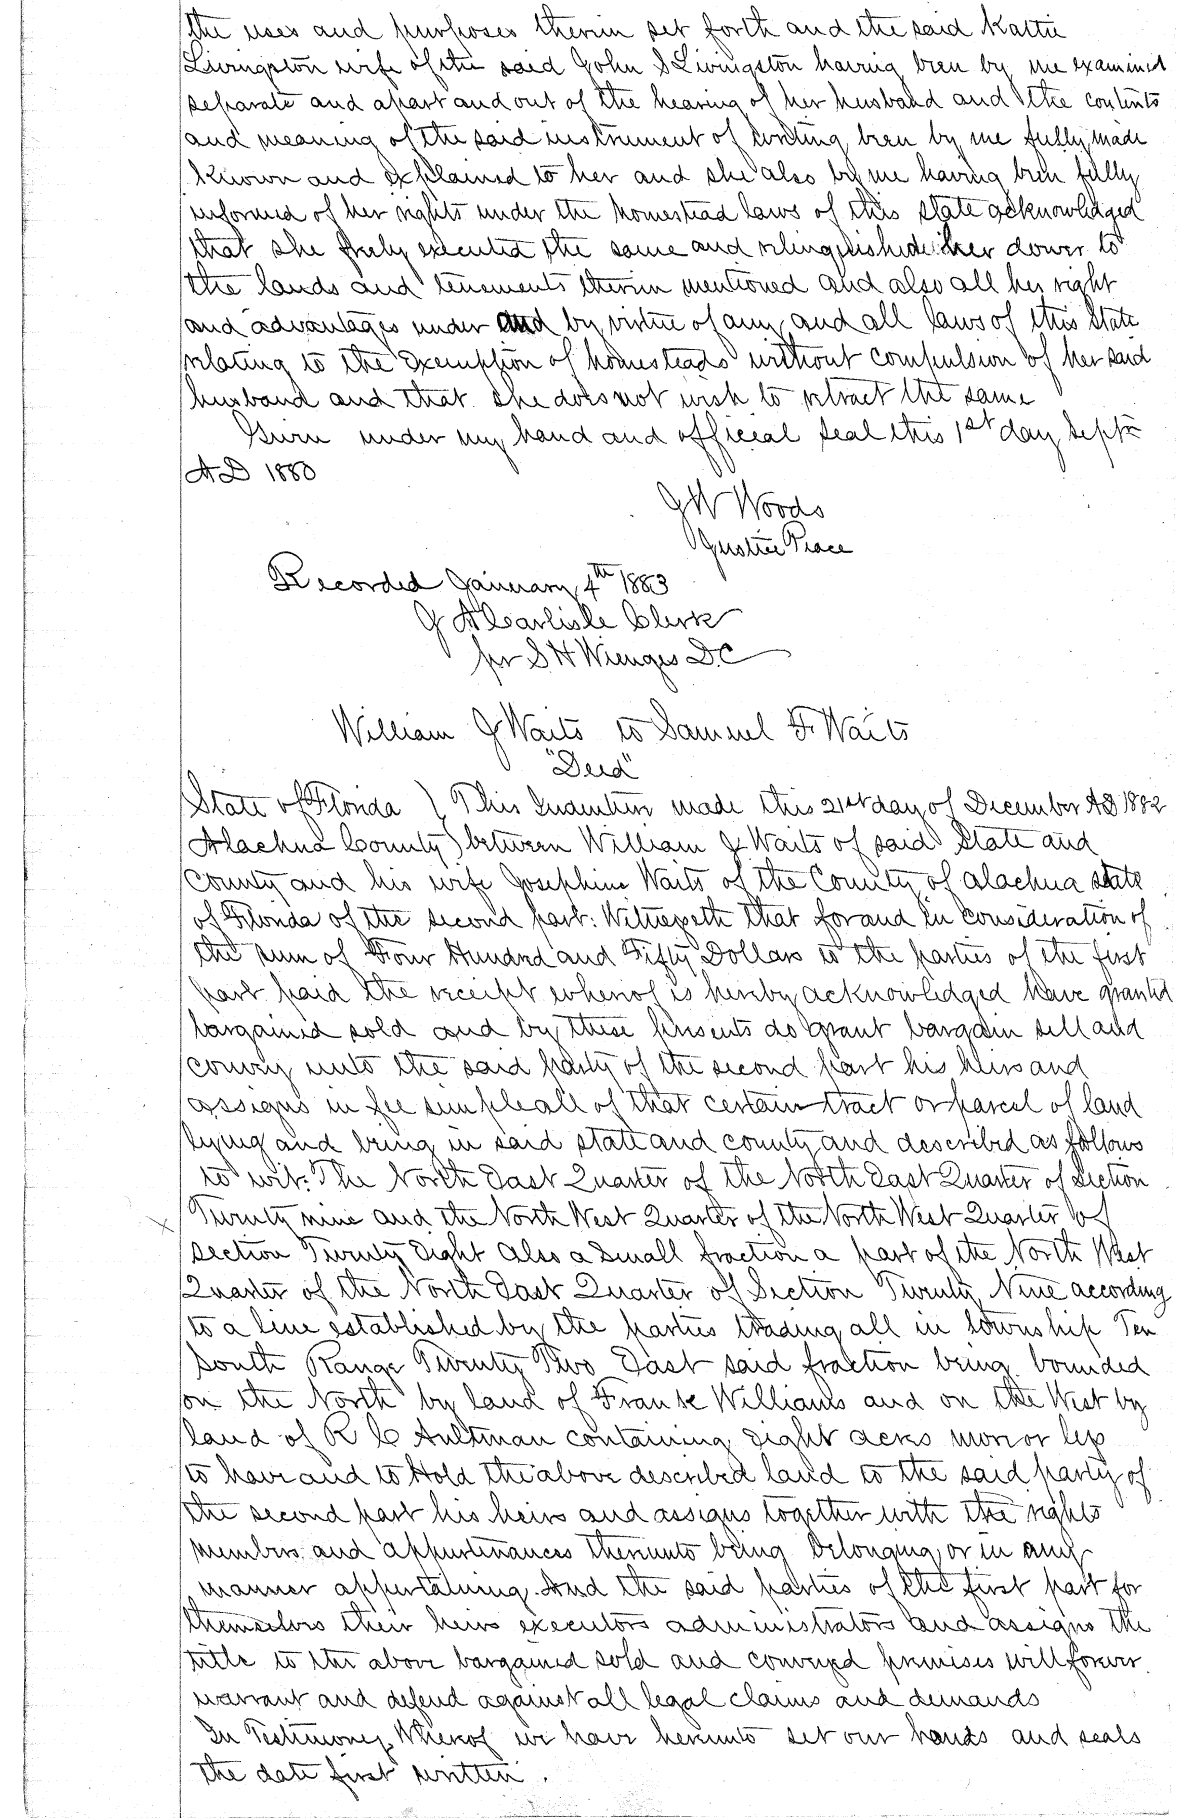 the uses and purposes therein set forth and the said Kattie
Livingston wife of the said John S Livingston having been by me examined
separate and apart and out of the hearing of her husband and the contents
and meaning of the said instrument of writing been by me fully made
known and explained to her and she also by me having been fully
informed of her rights under the homestead laws of this state acknowledged
that she freely executed the same and relinquished her dower to
the lands and tenements therein mentioned and also all her right
and advantages under and by virtue of any and all laws of this State
relating to the Exemption of homesteads without compulsion of her said
husband and that she does not wish to retract the same
Given under my hand and official seal this 1st day Septr
AD 1880
J W Woods
Justice Peace
Recorded January 4th 1883
J A Carlisle Clerk
per S H Wienges D.C
William J Waits to Samuel F. Waits
"Deed"
State of Florida ) This Indenture made this 21st day of December AD 1882
Alachua County ) between William J Waits of said State and
County and his wife Josephine Waits of the County of Alachua state
of Florida of the second part: Witnesseth that for and in consideration of
the sum of Four Hundred and Fifty Dollars to the parties of the first
part paid the receipt whereof is hereby acknowledged have granted
bargained sold and by these presents do grant bargain sell and
convey unto the said party of the second part his heirs and
assigns in fee simple all of that certain tract or parcel of land
lying and being in said state and county and described as follows
to wit: The North East Quarter of the North East Quarter of Section
Twenty nine and the North West Quarter of the North West Quarter of
section Twenty Eight Also a small fraction a part of the North West
Quarter of the North East Quarter of Section Twenty Nine according
to a line established by the parties trading all in township Ten
South Range Twenty Two East said fraction being bounded
on the North by land of Frank Williams and on the West by
land of R C Aultman containing Eight acres more or less
to have and to Hold the above described land to the said party of
the second part his heirs and assigns together with the rights
members and appurtenances thereunto being belonging or in any
manner appertaining. And the said parties of the first part for
themselves their heirs executors administrators and assigns the
title to the above bargained sold and conveyed premises will forever
warrant and defend against all legal claims and demands
In Testimony Whereof we have hereunto set our hands and seals
the date first written.